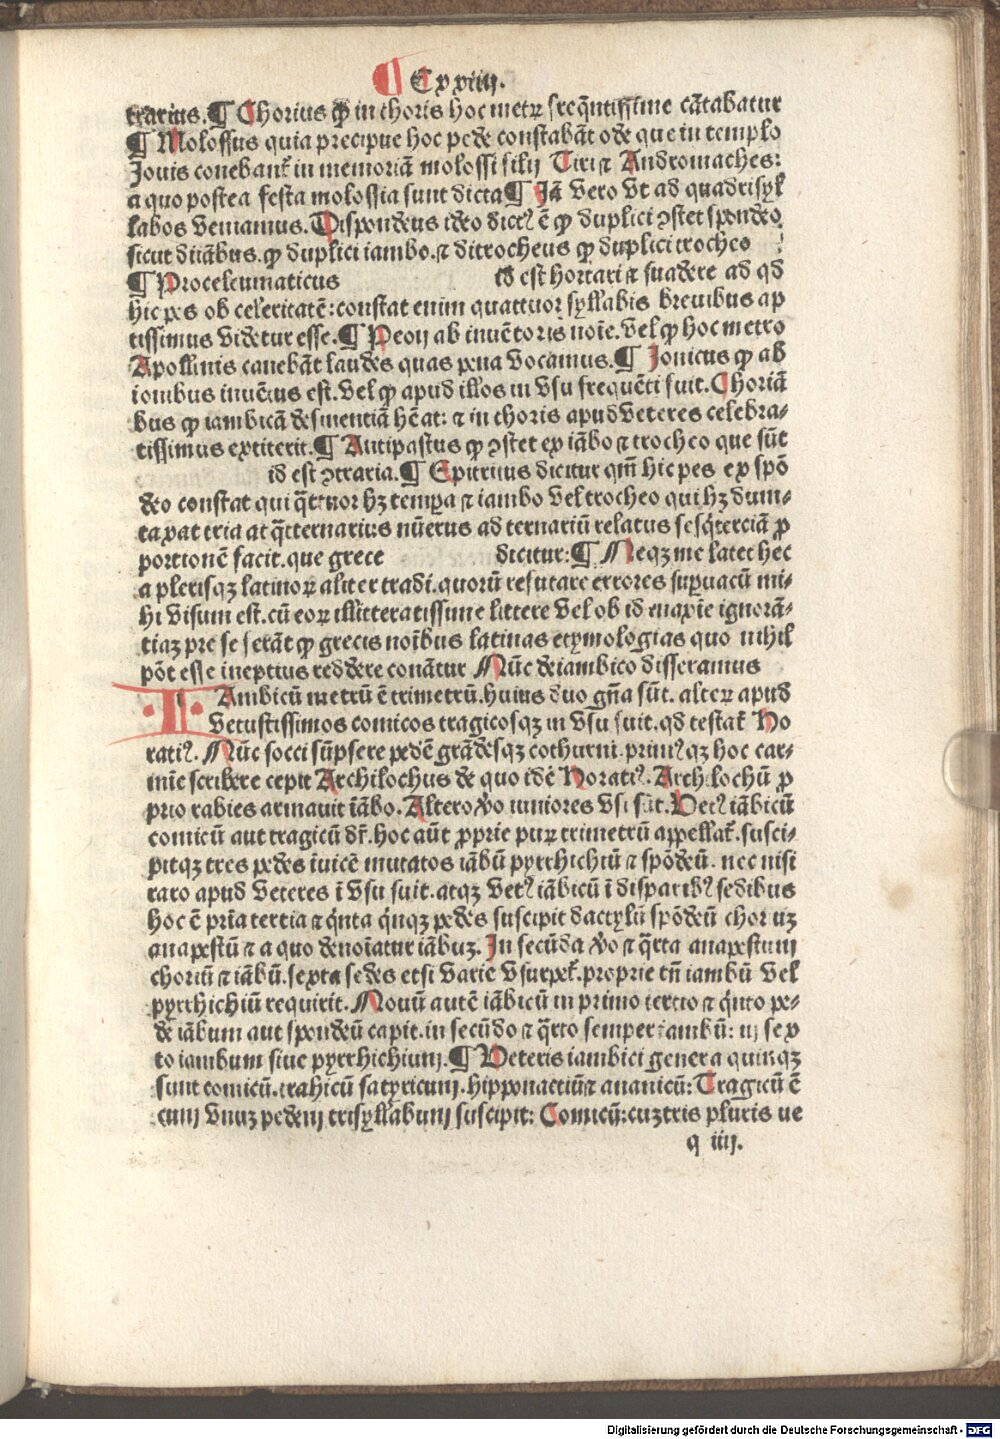 ¶ Cxxiiij.
trarius.¶ Chorius ꝙ in choris hoc metꝝ freq̃ntissime cãtabatur
¶ Molossus quia precipue hoc pede constabãt ode que in templo
Jouis conebant̃ in memoriã molossi filij Tiri ⁊ Andromaches:
a quo postea festa molossia sunt dicta¶ Jã vero vt ad quadrisyl
labos veniamus.Dispondeus ideo dictꝰ ẽ ꝙ duplici ꝯstet spondeo
sicut diiãbus.ꝙ duplici iambo.⁊ ditrocheus ꝙ duplici trocheo
¶ Proceleumaticus id est hortari ⁊ suadere ad qd
hic pes ob celeritatẽ:constat enim quattuor syllabis breuibus ap
tissimus videtur esse.¶ Peon ab inuẽtoris noie.vel ꝙ hoc metro
Apollinis canebãt laudes quas pena vocamus.¶ Jonicus ꝙ ab
ionibus inuẽtus est.vel ꝙ apud illos in vsu frequẽti fuit.Choriã
bus ꝙ iambicã desinentiã hẽat: ⁊ in choris apud veteres celebra-
tissimus extiterit.¶ Antipastus ꝙ ꝯstet ex iãbo ⁊ trocheo que sũt
id est ꝯtraria.¶ Epitritus dicitur qm̃ hic pes ex spõ
deo constat qui q̃ttuor hꝫ tempa ⁊ iambo vel trocheo qui hꝫ dum-
taxat tria at q̃tternarius nũerus ad ternariũ relatus sesq̃terciã ꝓ
portionẽ facit.que grece dicitur:¶ Neqꝫ me latet hec
a plerisqꝫ latinoꝝ aliter tradi.quorũ refutare errores supuacũ mi-
hi visum est.cũ eoꝝ illitteratissime littere vel ob id maxĩe ignorã-
tiaꝫ pre se ferãt ꝙ grecis noĩbus latinas etymologias quo nihil
põt esse ineptius reddere conãtur Nũc de iambico disseramus
I Ambicũ metrũ ẽ trimetrũ.huius duo gña sũt. alteꝝ apud
vetustissimos comicos tragicosqꝫ in vsu fuit.qd testat̃ Ho
ratiꝰ. Nũc socci sũpsere pedẽ grãdesqꝫ cothurni.primꝰqꝫ hoc car-
mĩe scribere cepit Archilochus de quo idẽ Horatiꝰ.Archilochũ ꝓ
prio rabies armauit iãbo.Altero ṽo iuniores vsi sũt.Vetꝰ iãbicũ
comicũ aut tragicũ dr̃.hoc aũt ꝓprie puꝝ trimetrũ appellat̃.susci-
pitqꝫ tres pedes ĩuicẽ mutatos iãbũ pyrrhichiũ ⁊ spõdeũ. nec nisi
raro apud veteres ĩ vsu fuit.atqꝫ vetꝰ iãbicũ ĩ disparibꝰ sedibus
hoc ẽ pria tertia ⁊ q̃nta q̃nqꝫ pedes suscipit dactylũ spõdeũ choriũꝫ
anapestũ ⁊ a quo denoĩatur iãbuꝫ. In secũda ṽo ⁊ q̃rta anapestum
choriũ ⁊ iãbũ.sexta sedes etsi varie vsurpet̃.proprie tñ iambũ vel
pyrrhichiũ requirit.Nouũ autẽ iãbicũ in primo tertio ⁊ q̃nto pe-
de iãbum aut spondeũ capit.in secũdo ⁊ q̃rto semper iambũ: in sex
to iambum siue pyrrhichium.¶ Veteris iambici genera quinqꝫ
sunt comicũ.trahicũ satyricum.hipponactiũ⁊ ananicũ:Tragicũ ẽ
cum vnuꝫ pedem trisyllabum suscipit: Comicũ:cuꝫ tris pluris ue
q iiij.
Digitalisierung gefördert durch die Deutsche Forschungsgemeinschaft - DFG